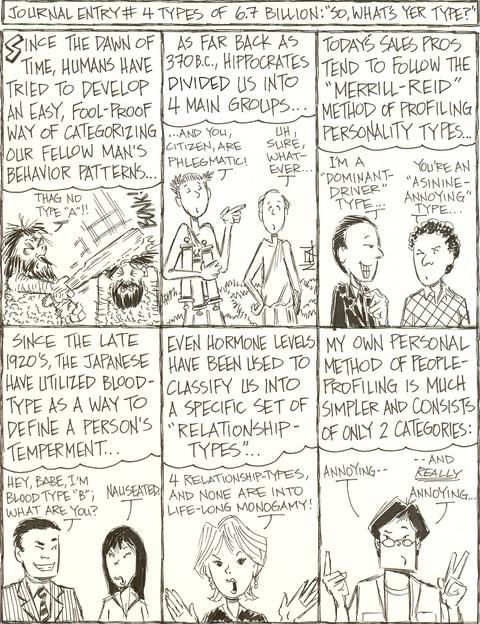 JOURNAL ENTRY# 4 TYPES OF 6.7 BILLION: "SO, WHAT'S YER TYPE?"
SINCE THE DAWN OF
TIME, HUMANS HAVE
TRIED TO DEVELOP
AN EASY, FOOL-PROOF
WAY OF CATEGORIZING
OUR FELLOW MAN'S
BEHAVIOR PATTERNS...
THAG NO
TYPE "A"!!
AS FAR BACK AS
370 B.C., HIPPOCRATES
DIVIDED US INTO
4 MAIN GROUPS...
...AND YOU,
CITIZEN, ARE
PHLEGMATIC!
UH,
SURE,
WHAT-
EVER...
TODAY'S SALES PROS
TEND TO FOLLOW THE
"MERRILL-REID"
METHOD OF PROFILING
PERSONALITY TYPES...
I'M A
"DOMINANT-
DRIVER"
TYPE...
YOU'RE AN
"ASININE-
ANNOYING"
TYPE...
SINCE THE LATE
1920'S, THE JAPANESE
HAVE UTILIZED BLOOD-
TYPE AS A WAY TO
DEFINE A PERSON'S
TEMPERMENT...
HEY, BABE, I'M
BLOOD TYPE "B";
WHAT ARE YOU?
NAUSEATED.
EVEN HORMONE LEVELS
HAVE BEEN USED TO
CLASSIFY US INTO
A SPECIFIC SET OF
"RELATIONSHIP-
TYPES"...
4 RELATIONSHIP-TYPES,
AND NONE ARE INTO
LIFE-LONG MONOGAMY!
MY OWN PERSONAL
METHOD OF PEOPLE-
PROFILING IS MUCH
SIMPLER AND CONSISTS
OF ONLY 2 CATEGORIES:
ANNOYING--
--AND
REALLY
ANNOYING...